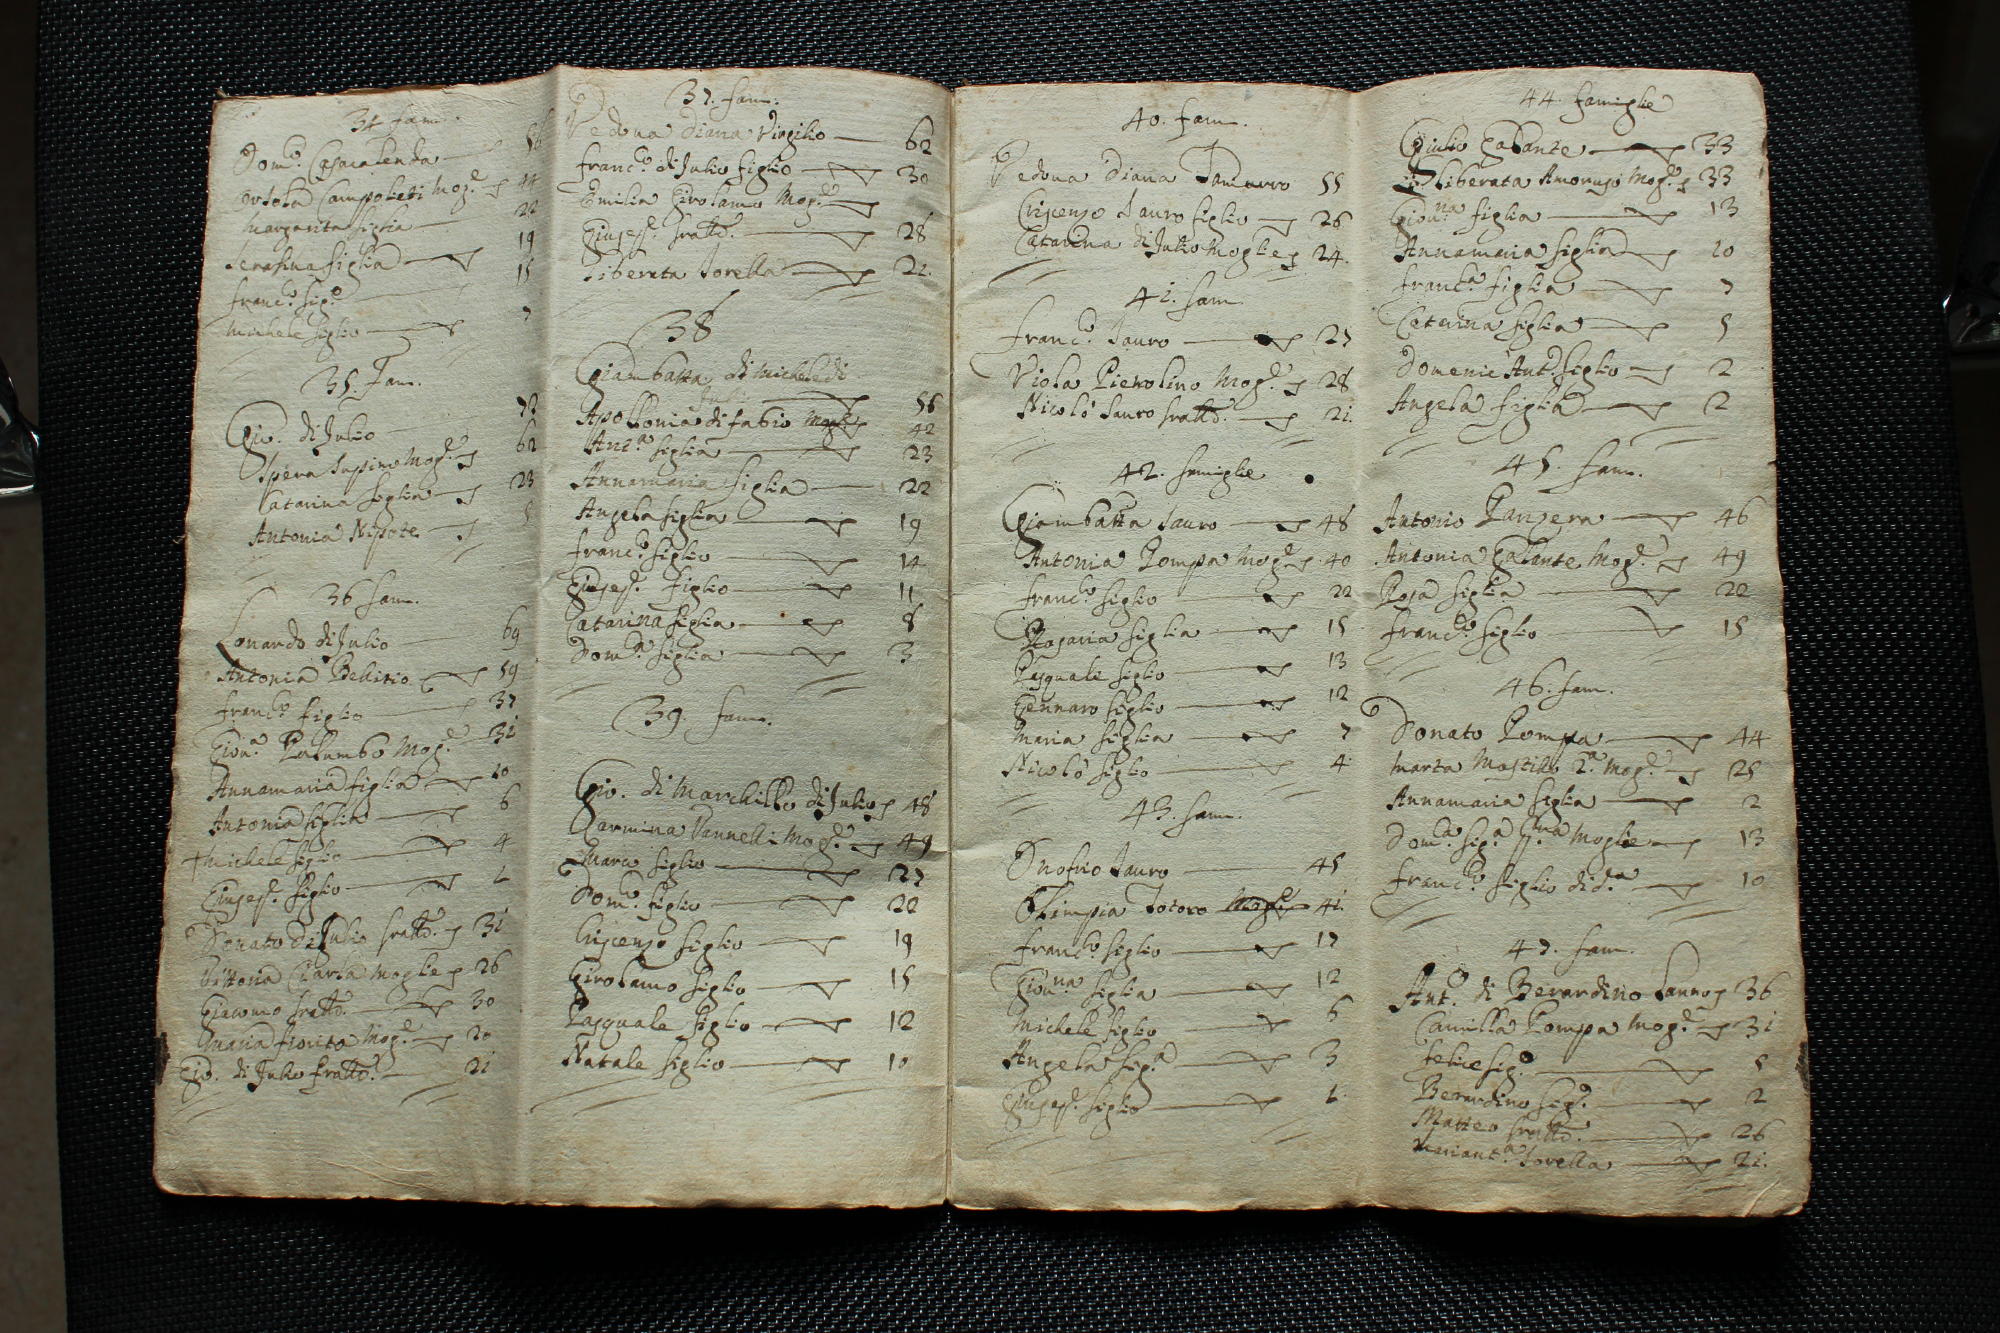 34 fam.
Dom.co Casacalenda 50
Orsola Campolieti Mog.e 44
Margarita figlia 22
Serafina figlia 19
Franc.o fig.o 15
Michele figlio 7
35. Fam.
Gio. di Julio 72
Spera Supino Mog.e 62
Catarina figlia 23
Antonia Nipote
36 fam.
Lonardo di Julio 69
Antonia Bellisio 59
Franc.o figlio 37
Giov.a Palumbo Mog.e 31
Annamaria figlia 10
Antonia figlia 6
+ Michele figlio 4
Giusep.e figlio 1
Donato di Julio fratto. 31
Vittoria Ciarla Moglie 26
Giacomo fratto. 30
Maria fiorito Mog.e 20
Gio. di Julio fratto. 21
37. fam.
Vedova Diana Virgilio 62
Franc.o di Julio figlio 30
Emilia Girolamo Mog.e
Giusep.e fratto. 28
Liberata Sorella 21.
38
Giambatta di Michele di
Julio 56
Apollonia di fabio Mogle 42
Ant.a figlia 23
Annamaria figlia 22
Angela figlia 19
Franc.o figlio 14
Giusep.e figlio 11
Catarina figlia 8
Dom.ca figlia 3
39. fam.
Gio. di Marchillo di Julio 48
Carmina Vannelli Mog.e 49
Marco figlio 27
Dom.co figlio 22
Criscenzo figlio 19
Girolamo figlio 15
Pasquale figlio 12
Natale figlio 10
40. fam.
Vedova Diana Tamurro 55
Criscenzo Sauro figlio 26
Catarina di Julio Moglie 24.
41. fam.
Franc.o Sauro 27
Viola Pietrolino Mog.e 28
Nicolò Sauro fratto. 21.
42. famiglie
Giambatta Sauro 48
Antonia Pompa Mog.e 40
Franc.o figlio 22
Rosaria figlia 15
Pasquale figlio 13
Gennaro figlio 12
Maria figlia 7
Nicolò figlio 4
43. fam.
Onofrio Sauro 45
Olimpia Totoro Mogle 41.
Franc.o figlio 17
Giov.na figlia 12
Michele figlio 6
Angela fig.a 3
Giusep.e figlio 1.
44. famiglie
Giulio Galante 33
Liberata Amoruso Mog.e 33
Giov.na figlia 13
Annamaria figlia 10
Franc.a figlia 7
Catarina figlia 5
Domenic'Ant.o figlio 2
Angela figlia 2
45. fam.
Antonio Panzera 46
Antonia Galante Mog.e 49
Rosa figlia 22
Franc.o figlio 15
46. fam.
Donato Pompa 44
Marta Mastillo 2.a Mog.e 25
Annamaria figlia 2
Dom.ca fig.a p.ma Moglie 13
Franc.o figlio di d.a 10
47. fam.
Ant.o di Berardino Sauro 36
Camilla Pompa Mog.e 31
Felice fig.o 5
Berardino fig.o 2
Matteo fratto. 26
Mariant.a Sorella 21.